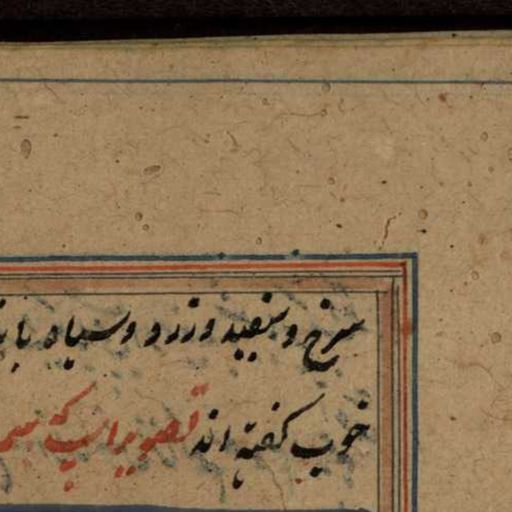 سرخ و سفید و زرد و سیاه
خوب گفته اند تصویر اسپ که